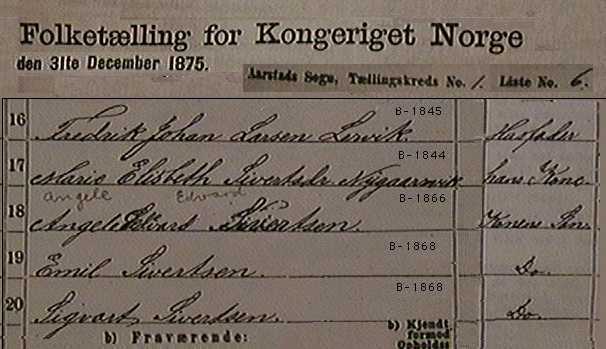 Folketælling for Kongeriget Norge
den 31te December 1875.
Aarstads Sogn, Tællingskreds No. 1. Liste No. 6.
B-1845
16 Fredrik Johan Larsen Lervik. Husfader
B-1844
17 Marie Elisbeth Sivertsdr Nygaardsvik hans Kone
Angele Edvard B-1866
18 Angel Edvard Sivertsen. Konens Søn
B-1868
19 Emil Sivertsen. Do.
B-1868
20 Sigvart Sivertsen. Do.
b) Fraværende: b) Kjendt
formod
Opholdss